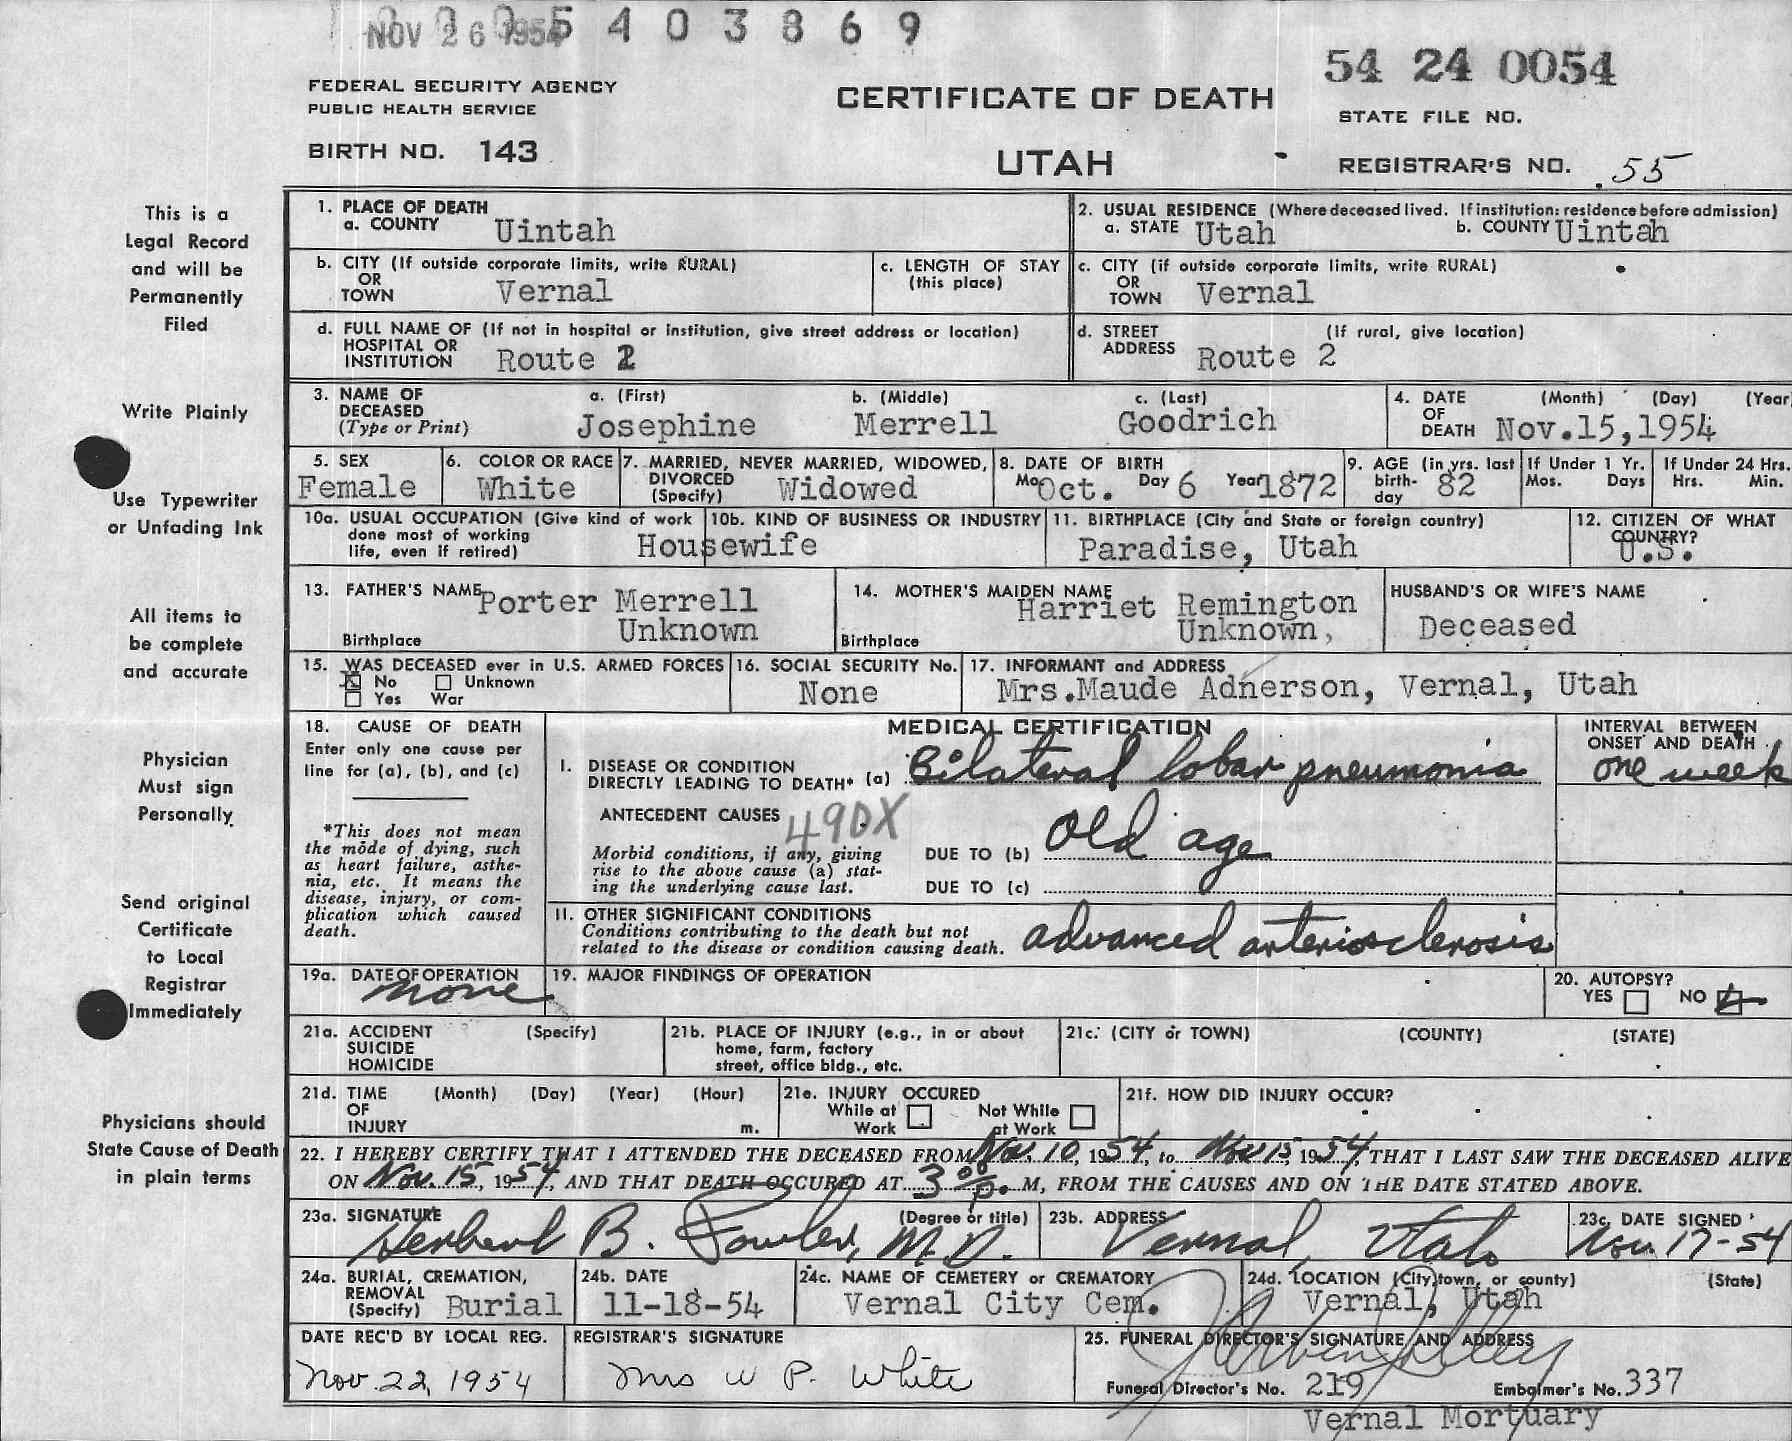 NOV 26 1954
5 4 0 3 8 6 9
54 24 0054
FEDERAL SECURITY AGENCY
PUBLIC HEALTH SERVICE
CERTIFICATE OF DEATH
STATE FILE NO.
BIRTH NO. 143
UTAH
REGISTRAR'S NO. 55
This is a
Legal Record
and will be
Permanently
Filed
Write Plainly
Use Typewriter
or Unfading Ink
All items to
be complete
and accurate
Physician
Must sign
Personally
Send original
Certificate
to Local
Registrar
Immediately
Physicians should
State Cause of Death
in plain terms
1. PLACE OF DEATH
a. COUNTY Uintah
2. USUAL RESIDENCE (Where deceased lived. If institution: residence before admission)
a. STATE Utah b. COUNTY Uintah
b. CITY (If outside corporate limits, write RURAL)
OR
TOWN Vernal
c. LENGTH OF STAY
(this place)
c. CITY (if outside corporate limits, write RURAL)
OR
TOWN Vernal
d. FULL NAME OF (If not in hospital or institution, give street address or location)
HOSPITAL OR
INSTITUTION Route 2
d. STREET (If rural, give location)
ADDRESS Route 2
3. NAME OF DECEASED
(Type or Print)
a. (First) b. (Middle) c. (Last)
Josephine Merrell Goodrich
4. DATE OF DEATH (Month) (Day) (Year
Nov.15,1954
5. SEX
Female
6. COLOR OR RACE
White
7. MARRIED, NEVER MARRIED, WIDOWED,
DIVORCED
(Specify) Widowed
8. DATE OF BIRTH
Mo Oct. Day 6 Year 1872
9. AGE (in yrs. last
birth-
day 82
If Under 1 Yr.
Mos. Days
If Under 24 Hrs.
Hrs. Min.
10a. USUAL OCCUPATION (Give kind of work
done most of working
life, even if retired) Housewife
10b. KIND OF BUSINESS OR INDUSTRY
11. BIRTHPLACE (City and State or foreign country)
Paradise, Utah
12. CITIZEN OF WHAT
COUNTRY?
U.S.
13. FATHER'S NAME Porter Merrell
Birthplace Unknown
14. MOTHER'S MAIDEN NAME
Harriet Remington
Birthplace Unknown,
HUSBAND'S OR WIFE'S NAME
Deceased
15. WAS DECEASED ever in U.S. ARMED FORCES
☒ No ☐ Unknown
☐ Yes War
16. SOCIAL SECURITY No.
None
17. INFORMANT and ADDRESS
Mrs.Maude Adnerson, Vernal, Utah
18. CAUSE OF DEATH
Enter only one cause per
line for (a), (b), and (c)
*This does not mean
the mode of dying, such
as heart failure, asthe-
nia, etc. It means the
disease, injury, or com-
plication which caused
death.
MEDICAL CERTIFICATION
I. DISEASE OR CONDITION
DIRECTLY LEADING TO DEATH* (a) Bilateral lobar pneumonia
INTERVAL BETWEEN
ONSET AND DEATH
one week
ANTECEDENT CAUSES 490X
Morbid conditions, if any, giving
rise to the above cause (a) stat-
ing the underlying cause last.
DUE TO (b) old age
DUE TO (c)
II. OTHER SIGNIFICANT CONDITIONS
Conditions contributing to the death but not
related to the disease or condition causing death. advanced arteriosclerosis
19a. DATE OF OPERATION
none
19. MAJOR FINDINGS OF OPERATION
20. AUTOPSY?
YES ☐ NO ☑
21a. ACCIDENT (Specify)
SUICIDE
HOMICIDE
21b. PLACE OF INJURY (e.g., in or about
home, farm, factory
street, office bldg., etc.
21c. (CITY or TOWN) (COUNTY) (STATE)
21d. TIME (Month) (Day) (Year) (Hour)
OF
INJURY m.
21e. INJURY OCCURED
While at Work ☐ Not While at Work ☐
21f. HOW DID INJURY OCCUR?
22. I HEREBY CERTIFY THAT I ATTENDED THE DECEASED FROM Nov. 10, 1954, to Nov 15, 1954, THAT I LAST SAW THE DECEASED ALIVE
ON Nov. 15, 1954, AND THAT DEATH OCCURED AT 3 00 p. M, FROM THE CAUSES AND ON THE DATE STATED ABOVE.
23a. SIGNATURE (Degree or title)
Herbert B. Fowler, M.D.
23b. ADDRESS
Vernal, Utah
23c. DATE SIGNED
Nov. 17-54
24a. BURIAL, CREMATION,
REMOVAL
(Specify) Burial
24b. DATE
11-18-54
24c. NAME OF CEMETERY or CREMATORY
Vernal City Cem.
24d. LOCATION (City, town, or county) (State)
Vernal, Utah
DATE REC'D BY LOCAL REG.
Nov. 22, 1954
REGISTRAR'S SIGNATURE
Mrs W P. White
25. FUNERAL DIRECTOR'S SIGNATURE AND ADDRESS
Funeral Director's No. 219 Embalmer's No. 337
Vernal Mortuary